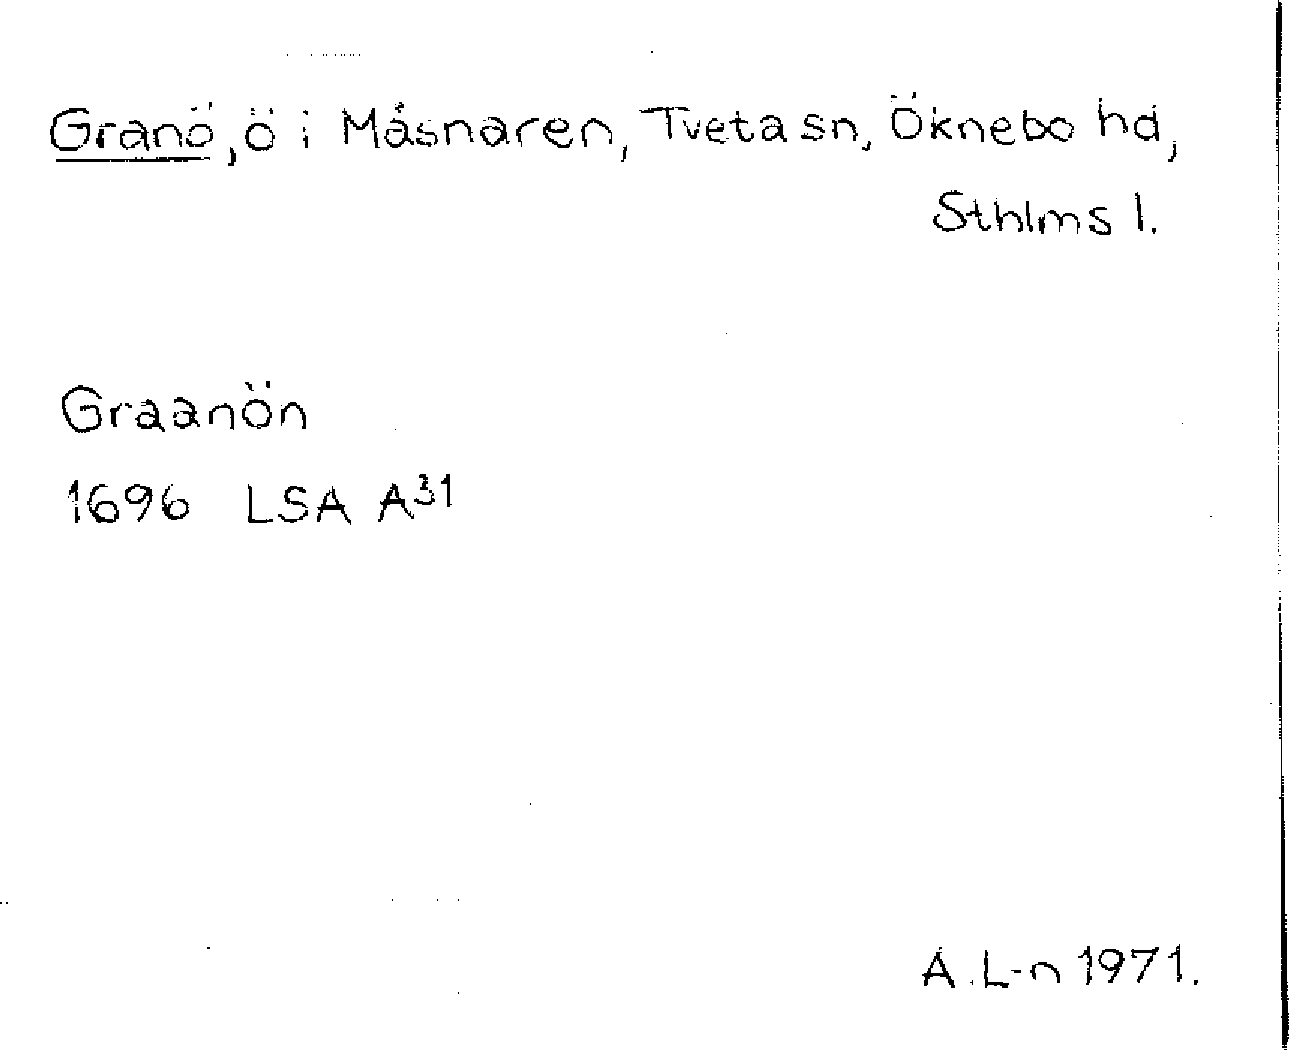 Granö, ö i Måsnaren, Tveta sn, Öknebo hd,
Sthlms l.
Graanön
1696 LSA A31
A.L-n 1971.